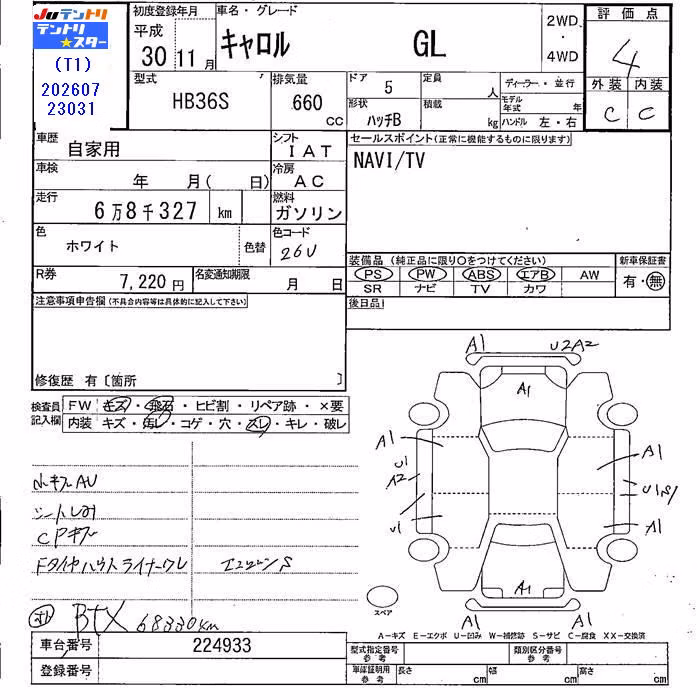 Juテントリ
テントリ★スター
(T1)
202607
23031
初度登録年月
平成
30 11月
車名・グレード
キャロル GL
2WD
・
4WD
評価点
4
外装 内装
C C
型式
HB36S
排気量
660
CC
ドア 5
形状 ハッチB
定員 人
積載 kg
ディーラー・並行
モデル年式 年
ハンドル 左・右
車歴
自家用
シフト
IAT
車検
年 月( 日)
冷房
AC
走行
6万8千327 km
燃料
ガソリン
色
ホワイト
色替
色コード
26U
R券
7,220円
名変通知期限
月 日
セールスポイント(正常に機能するものに限ります)
NAVI/TV
装備品(純正品に限り○をつけてください)
PS PW ABS エアB AW
SR ナビ TV カワ
新車保証書
有・無
後日品
注意事項申告欄(不具合内容等は具体的に記入して下さい)
修復歴 有〔箇所 〕
検査員
記入欄
FW キズ・飛石・ヒビ割・リペア跡・×要
内装 キズ・汚レ・コゲ・穴・スレ・キレ・破レ
小キズAU
シートしみ
CPキズ
Fタイヤハウスライナーワレ
エンジンS
BTX 68330km
A1 U2A2
A1
A1 A1
U1
A2 U1S1
U1 A1
A1
A1 A1
スペア
A-キズ E-エクボ U-凹み W-補修跡 S-サビ C-腐食 XX-交換済
車台番号 224933
登録番号
型式指定番号
参考
類別区分番号
参考
車庫証明用
参考
長さ cm
幅 cm
高さ cm